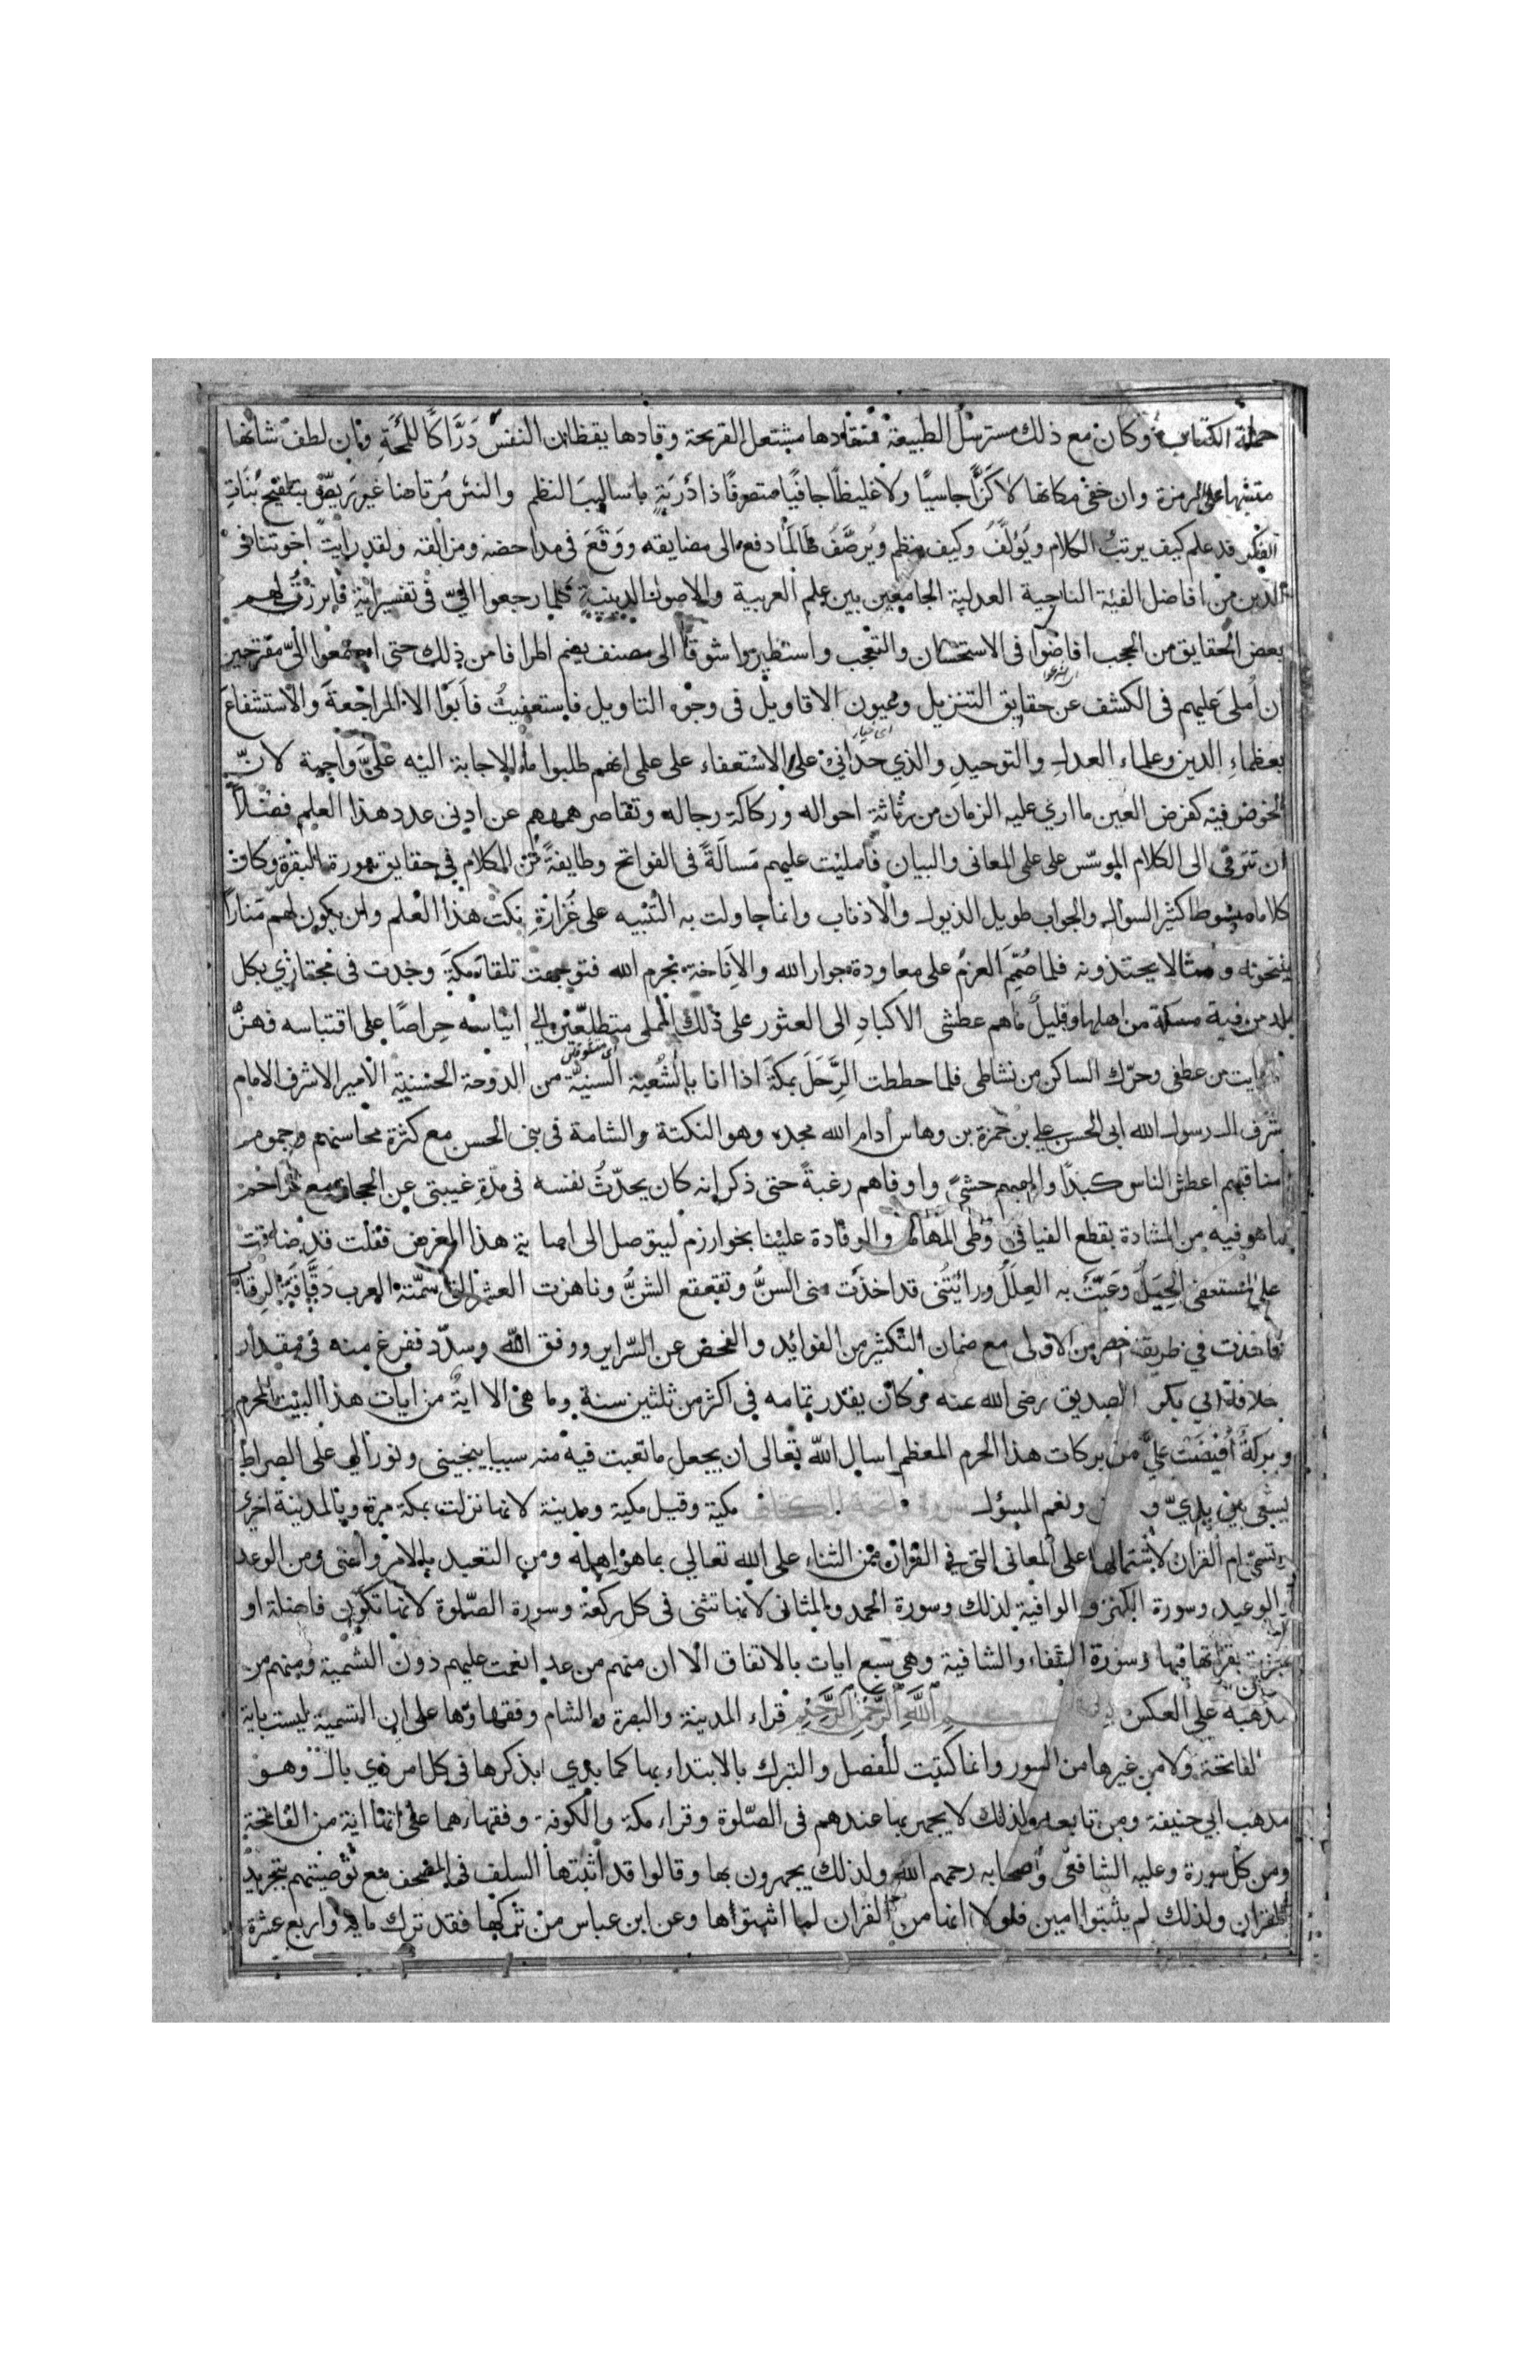 حملة الكتاب وكان مع ذلك مسترسل الطبيعة منقادها مشتعل القريحة وقادها يقظان النفس دَرَّاكًا للمحَةِ وان لطف شانها
متنبها على الرمزة وان خفى مكانها لا كَزًّا جاسيًا ولا غليظًا جافيًا متصرفًا ذا دُرْبَةٍ باساليب النظم والنثر مُرتاضا غير رَيِّضٍ بتلقيح بَنَاتِ
الفكر قد علم كيف يرتب الكلام ويُؤلَّفُ وكيف ينظم ويُرصَّفُ طَالَمَا دفع الى مضايقه ووَقَعَ فى مداحضه ومزالقه ولقد رايتُ اخوتنا فى
الدين من افاضل الفئة الناجية العدلية الجامعين بين علم العربية والاصول الدينية كلما رجعوا الىّ فى تفسير اية فابرزتُ لهم
بعض الحقايق من الحجب افاضوا فى الاستحسان والتعجب واستطيروا شوقًا الى مصنف يضم اطرافا من ذلك حتى اجتمعوا الىّ مقترحين
ان اُملى عليهم فى الكشف عن حقايق التنزيل وعيون الاقاويل فى وجوه التاويل فاستعفيتُ فاَبَوْا الا المراجعةَ والاستشفاعَ
بعظماءِ الدين وعلماء العدل والتوحيدِ والذي حدانى على الاستعفاء على علمى انهم طلبوا ما الاجابة اليه علىَّ واجبة لانّ
الخوض فيه كفرض العين ما ارى عليه الزمان من رثاثة احواله وركاكة رجاله وتقاصر هممهم عن ادنى عدد هذا العلم فضلاً
ان تترقى الى الكلام الموسّس على علمى المعانى والبيان فامليت عليهم مَسالَةً فى الفواتح وطايفةً من الكلام فى حقايق سورة البقرة وكان
كلاما مبسوطا كثير السؤال والجواب طويل الذيول والاذناب وانما حاولت به التنبيه على غُزارةِ نكت هذا العلم وان يكون لهم مَناراً
ينتحونه ومثالا يحتذونه فلما صُمِّمَ العزمُ على معاودة جوار الله والاِناخة بحرم الله فتوجهت تلقاء مكةَ وجدت فى مجتازي بكل
بلد من فيه مسكة من اهلها وقليلٌ ما هم عطشى الاكبادِ الى العثور على ذلك المملى متطلّعين الى ايناسه حِراصًا على اقتباسه فهزّ
ما رايت من عطفى وحرّك الساكن من نشاطى فلما حططت الرَّحلَ بمكةَ اذا انا بالشُعبة السنيّة من الدوحة الحسنية الأمير الاشرف الامام
شرف ال رسول الله ابى الحسن على بن حمزة بن وهاس أدام الله مجده وهو النكتة والشامة فى بنى الحسن مع كثرة محاسنهم وجموم
مناقبهم اعطش الناس كبدًا والهبهم حشىً واوفاهم رغبةً حتى ذكر انه كان يحدّثُ نفسه فى مدّةِ غيبتى عن الحجاز مع تزاحم
ما هو فيه من المشادة بقطع الفيافى وطى المهامه والوفادة علينا بخوارزم ليتوصل الى اصابة هذا الغرض فقلت قد ضاقت
على المستعفى الحِيَلُ وعَيَّتْ به العِلَلُ ورايتُنى قد اخذت منى السنُّ وتقعقع الشنُّ وناهزت العشر التى سمّتها العرب دَقَّاقَةَ الرقاب
فاخذت في طريقة اخصر من الاولى مع ضمان التكثير من الفوائد والفحص عن السّراير ووفق الله وسدّد ففرغ منه فى مقدار
خلافة ابي بكر الصديق رضى الله عنه وكان يقدر تمامه فى اكثر من ثلثين سنة وما هى الا اية من ايات هذا البيت المحرم
وبركةٌ اُفيضَت علىّ من بركات هذا الحرم المعظم اسال الله تعالى ان يجعل ما تعبت فيه منه سببا ينجينى ونورا لى على الصراط
يسعى بين يديّ و ونعم المسؤل فاتحة الكتاب مكية وقيل مكية ومدينة لانها نزلت بمكة مرة وبالمدينة اخرى
وتسمى ام القران لاشتمالها على المعانى التى فى القران من الثناء على الله تعالى بما هو اهله ومن التعبد بالامر والنهى ومن الوعد
والوعيد وسورة الكنز والوافية لذلك وسورة الحمد والمثانى لانها تثنى فى كل ركعة وسورة الصّلوة لانها تكون فاضلة او
مجزئة بقراتها فيها وسورة الشفاء والشافية وهى سبع ايات بالاتفاق الا ان منهم من عد انعمت عليهم دون التسمية ومنهم من
مذهبه على العكس بسم الله الرحمن الرحيم قراء المدينة والبصرة والشام وفقهاؤها على ان التسمية ليست باية
الفاتحة ولا من غيرها من السور وانما كتبت للفصل والتبرك بالابتداء بها كما بدى بذكرها فى كل امر ذي بال وهو
مذهب ابي حنيفة ومن تابعه ولذلك لا يجهر بها عندهم فى الصّلوة وقراء مكة والكوفة وفقهاءهما على انها اية من الفاتحة
ومن كل سورة وعليه الشافعى واصحابه رحمهم الله ولذلك يجهرون بها وقالوا قد اثبتها السلف فى المصحف مع توصيتهم بتجريد
القران ولذلك لم يثبتوا امين فلولا انها من القران لما اثبتوها وعن ابن عباس من تركها فقد ترك ماية واربع عشرة